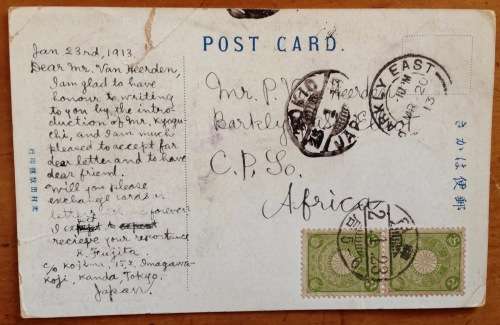 POST CARD.
Jan 23rd, 1913.
Dear Mr. Van Heerden,
I am glad to have
honour to writing
to you by the intro-
duction of Mr. Kyogu-
chi, and I am much
pleased to accept far
dear letter and to have
dear friend.
Will you please
exchange cards or
letters forever
I
recieve your
K. Fujita.
c/o Kojima, 15, Imagawa-
Koji, Kanda, Tokyo.
Japan.
Mr. P. Heerden
Barkly East
C. P. So.
Africa.
BARKLY EAST
MAR 20
13
TOKIO
JAPAN
きかは便郵